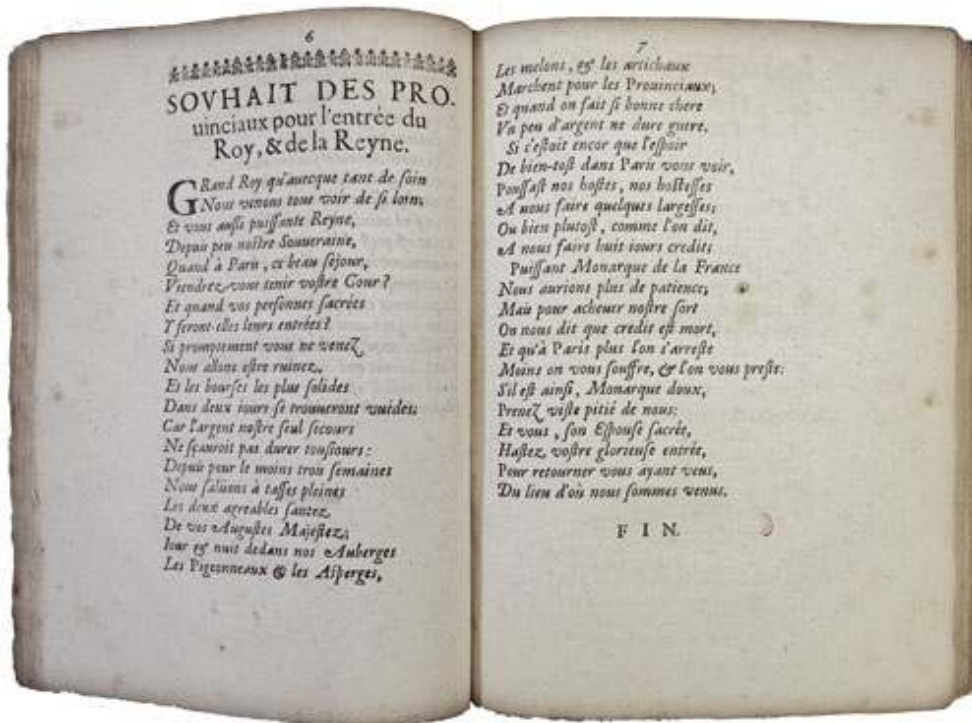 6
SOVHAIT DES PRO.
uinciaux pour l'entrée du
Roy, & de la Reyne.
GRand Roy qu'auecque tant de soin
Nous venons tous voir de si loin;
Et vous aussi puissante Reyne,
Depuis peu nostre Souueraine,
Quand à Paris, ce beau sejour,
Viendrez-vous tenir vostre Cour?
Et quand vos personnes sacrées
Y feront-elles leurs entrées?
Si promptement vous ne venez
Nous allons estre ruinez,
Et les bourses les plus solides
Dans deux iours se trouueront vuides;
Car l'argent nostre seul secours
Ne sçauroit pas durer tousiours:
Depuis pour le moins trois semaines
Nous salüons à tasses pleines
Les deux agreables santez
De vos Augustes Majestez;
Iour & nuit dedans nos Auberges
Les Pigeonneaux & les Asperges,
7
Les melons, & les artichaux
Marchent pour les Prouinciaux;
Et quand on fait si bonne chere
Vn peu d'argent ne dure guere.
Si c'estoit encor que l'espoir
De bien-tost dans Paris vous voir,
Poussast nos hostes, nos hostesses
A nous faire quelques largesses;
Ou bien plutost, comme l'on dit,
A nous faire huit iours credit;
Puissant Monarque de la France
Nous aurions plus de patience;
Mais pour acheuer nostre sort
On nous dit que credit est mort,
Et qu'à Paris plus l'on s'arreste
Moins on vous souffre, & l'on vous preste:
S'il est ainsi, Monarque doux,
Prenez viste pitié de nous;
Et vous, son Espouse sacrée,
Hastez vostre glorieuse entrée,
Pour retourner vous ayant veus,
Du lieu d'où nous sommes venus.
FIN.